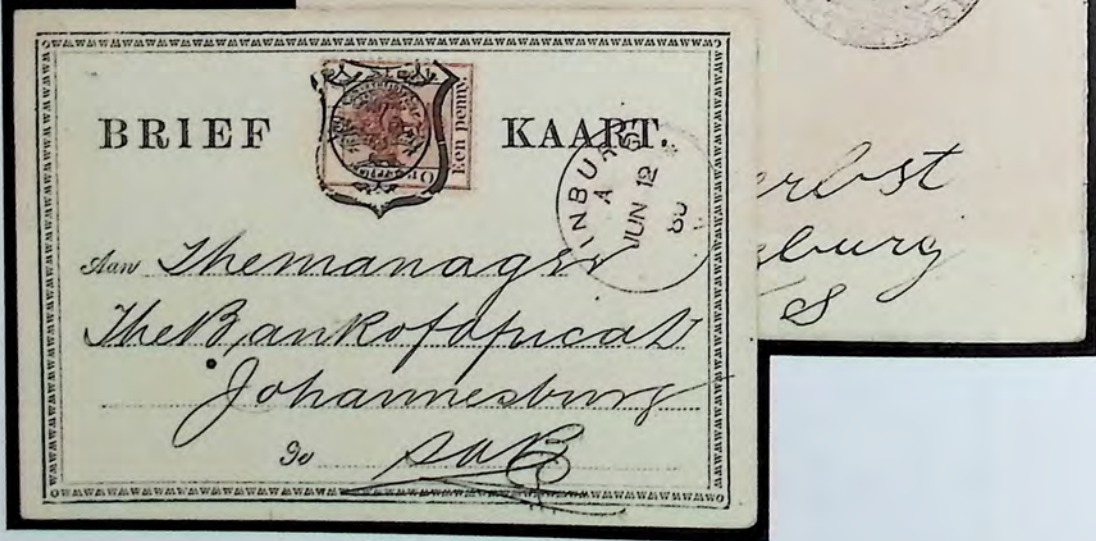 BRIEF KAART.
Een penny.
Or
INBURG
A
JUN 12
Aan The manager
The Bank of Africa Ld
Johannesburg
Te SAR
erbst
zburg
S